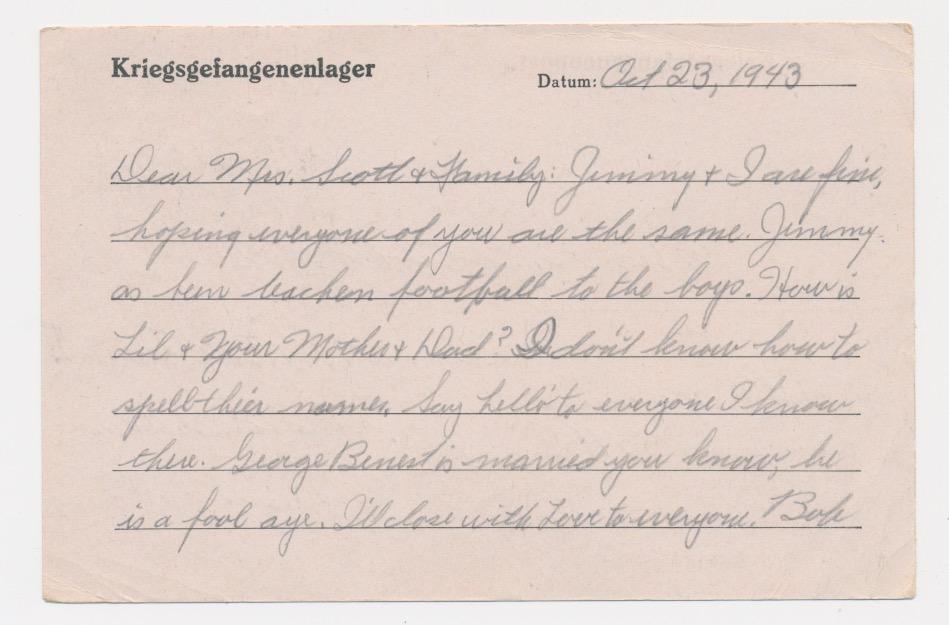 Kriegsgefangenenlager
Datum: Oct 23, 1943
Dear Mrs. Scott & Family: Jimmy & I are fine,
hoping everyone of you are the same. Jimmy
as been teachen football to the boys. How is
Lil & Your Mother & Dad? I don't know how to
spell thier names. Say hello to everyone I know
there. George is married you know, he
is a fool aye. I'll close with Love to everyone. Bob